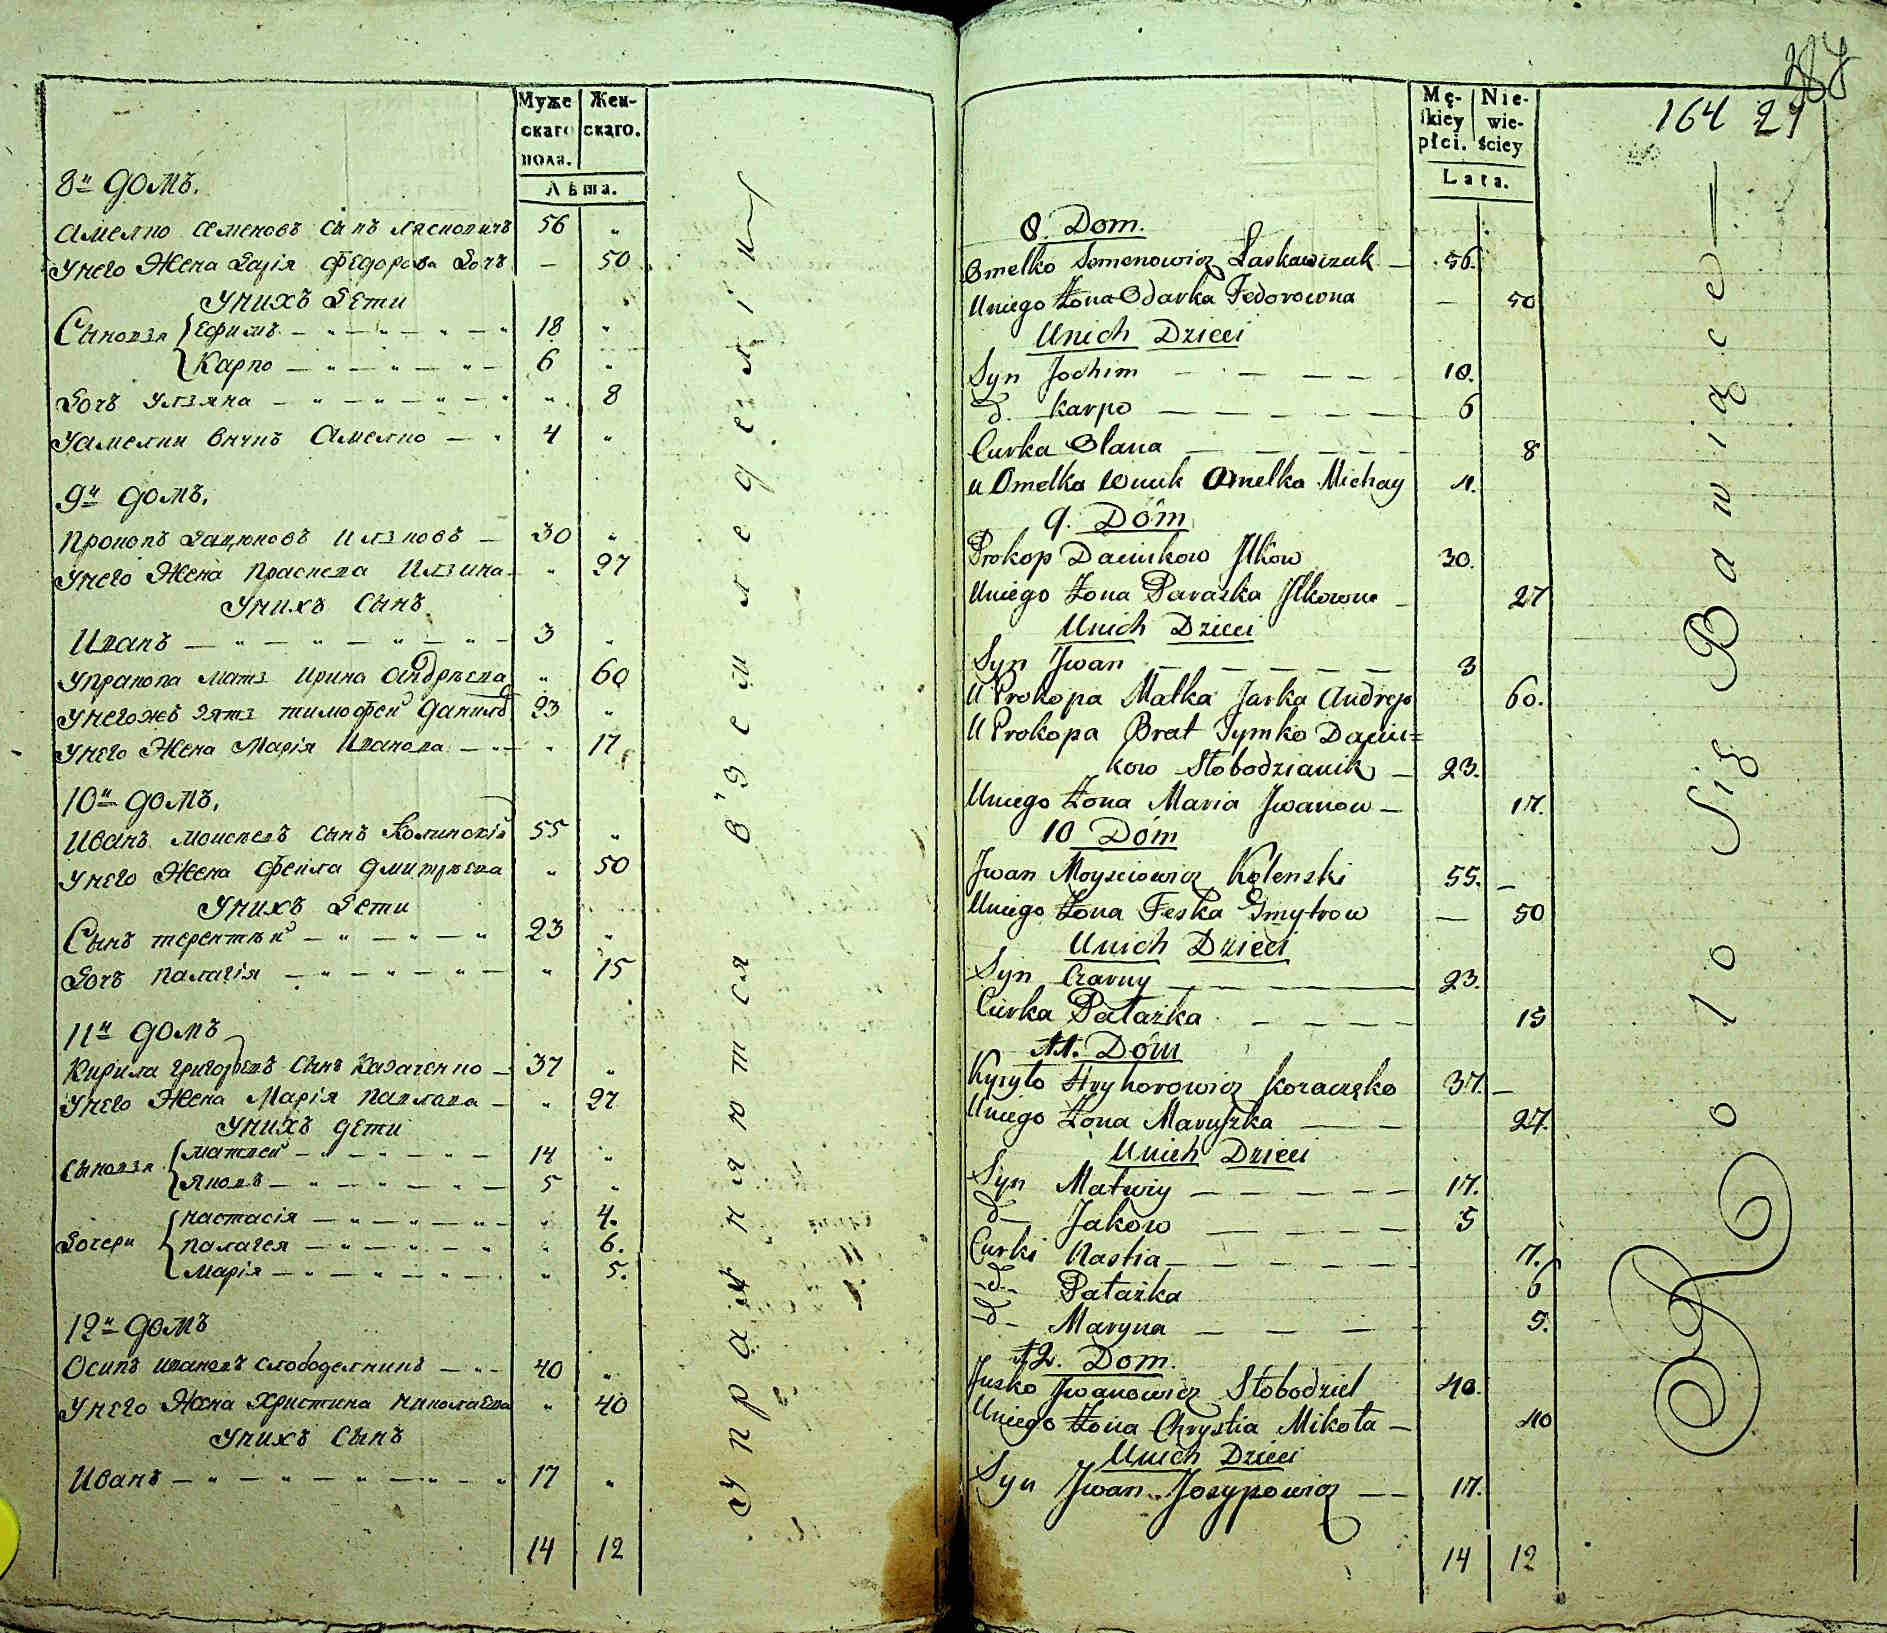 Муже
скаго
пола.
Жен-
скаго.
Лѣта.
8й домъ.
Амелко Семеновъ Сынъ 56 „
Унего Жена Дарія Федорова Дочъ — 50
Унихъ Дети
Сыновья Ефимъ 18 „
Карпо 6 „
Дочъ Уляна „ 8
Уамелки внукъ Амелко 4 „
9й домъ.
Прокопъ Илзковъ 30 „
Унего Жена Праскева „ 27
Унихъ Сынъ
Иванъ 3 „
Упракопа мать Ирина Андрѣева „ 60
Унегожъ зять тимофей Данилъ 23 „
Унего Жена Марія Иванова „ 17
10й домъ.
Иванъ Моисѣевъ Сынъ 55 „
Унего Жена Фекла Дмитрѣева „ 50
Унихъ Дети
Сынъ терентѣй 23 „
Дочъ палагія „ 15
11й домъ
Кирила григорѣевъ Сынъ Казаченко 37 „
Унего Жена Марія Павлова „ 27
Унихъ дети
Сыновья матвей 14 „
Яковъ 5 „
Дочери настасія „ 4.
палагея „ 6.
Марія „ 5.
12й домъ
Осипъ Ивановъ 40 „
Унего Жена Христина николаева „ 40
Унихъ Сынъ
Иванъ 17 „
14 12
упражняются въ земледеліи
Mę-
skiey
płci.
Nie-
wie-
ściey
Lata.
164 27
8. Dom.
Omelko Semenowicz Laskawczuk 56.
Uniego Żona Odarka Fedorowna — 50
Unich Dzieci
Syn Jochim 18.
d. Karpo 6
Curka Olana 8
u Omelka wnuk Omelko Michay 4.
9. Dóm
Prokop Daniukow Ilkow 30.
Uniego Żona Paraska Ilkowna 27
Unich Dzieci
Syn Jwan 3
U Prokopa Matka Jarka Andrejo 60.
U Prokopa Brat Tymko Daniu=
kow Słobodzianik 23.
Uniego Żona Maria Jwanow 17.
10 Dóm
Jwan Moysciowicz Kolenski 55. —
Uniego Żona Feska Dmytrow — 50
Unich Dzieci
Syn Czarny 23.
Curka Pałażka 15
11. Dóm
Kyryło Hryhorowicz Kozaczęko 37. —
Uniego Żona Maruszka 27.
Unich Dzieci
Syn Matwiy 17.
d— Jakow 5
Curki Nastia 7.
-d- Pałażka 6
-d- Maryna 5.
12. Dom.
Jusko Jwanowicz Słobodziel 40.
Uniego Żona Chrystia Mikoła 40
Unich Dzieci
Syn Jwan Josypowicz 17.
14 12
Rolo Się Bawiące